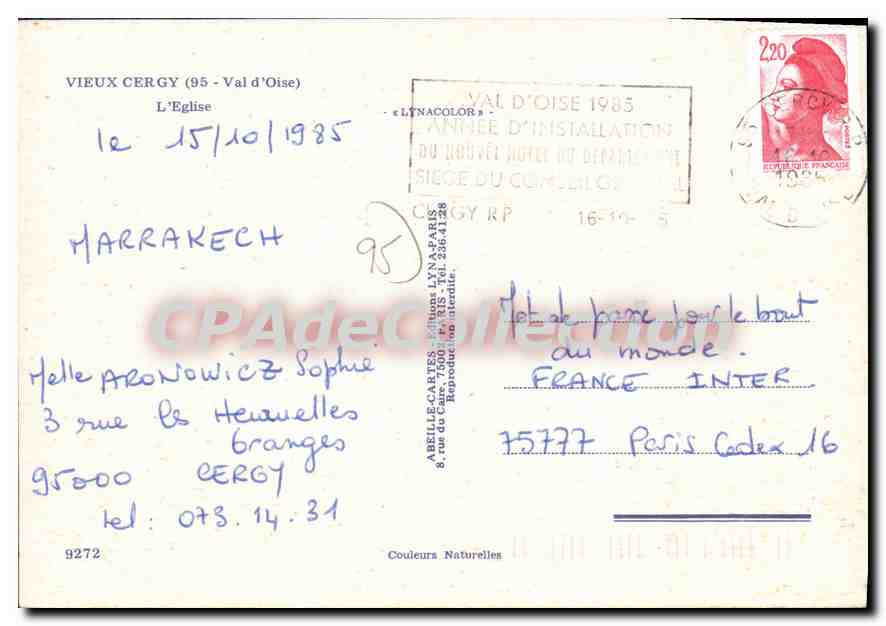 VIEUX CERGY (95 - Val d'Oise)
L'Eglise
le 15/10/1985
MARRAKECH
95
Melle ARONOWICZ Sophie
3 rue les Heuruelles
Granges
95000 CERGY
tel : 073.14.31
9272
- «LYNACOLOR» -
VAL D'OISE 1985
L'ANNEE D'INSTALLATION
DU NOUVEL HOTEL DU DEPARTEMENT
SIEGE DU CONSEIL
CERGY RP 16-10-
2,20
REPUBLIQUE FRANÇAISE
CERGY
1985
ABEILLE-CARTES - Editions LYNA-PARIS
8, rue du Caire, 75002 PARIS - Tél. 236.41.28
Reproduction interdite.
CPAdeCollection
Mot de passe pour le bout
du monde.
FRANCE INTER
75777 Paris Cedex 16
Couleurs Naturelles